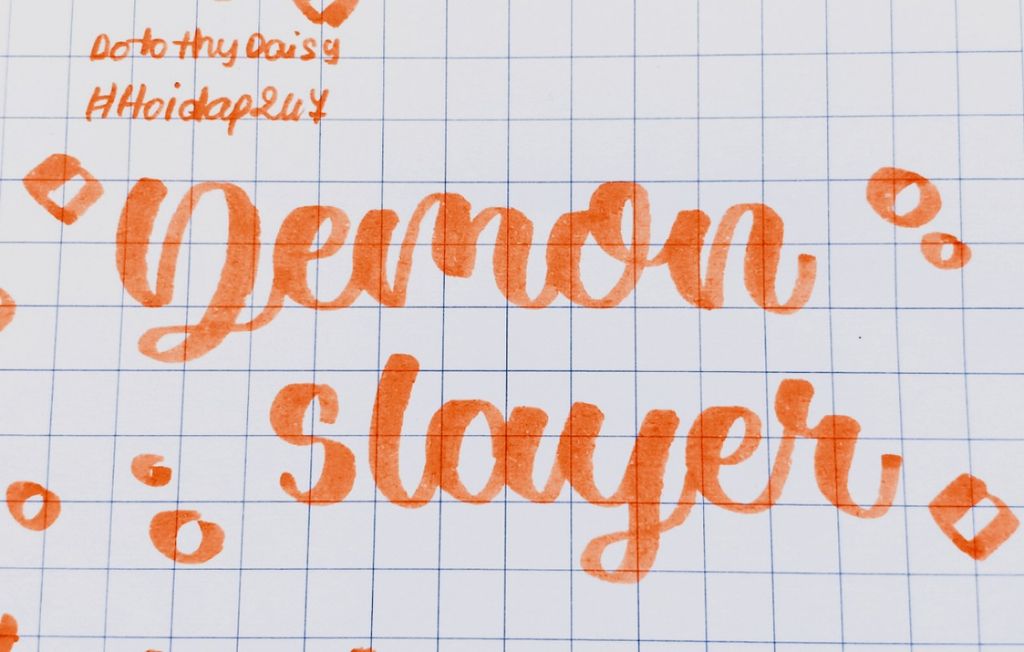 DotothyDaisy
#Hoidap247
Demon
slayer